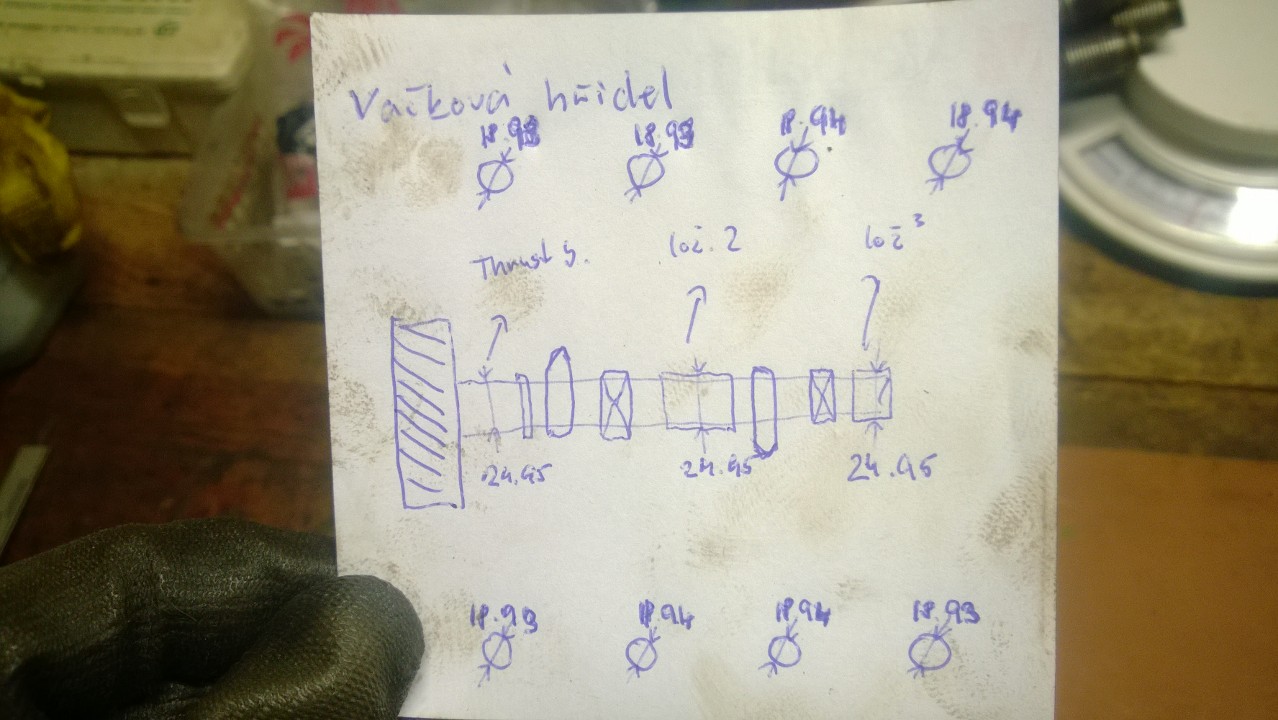 Vačková hřídel
18.93 18.93 18.94 18.94
Thrust lož. 2 lož 3
24.95 24.95 24.95
18.93 18.94 18.94 18.93